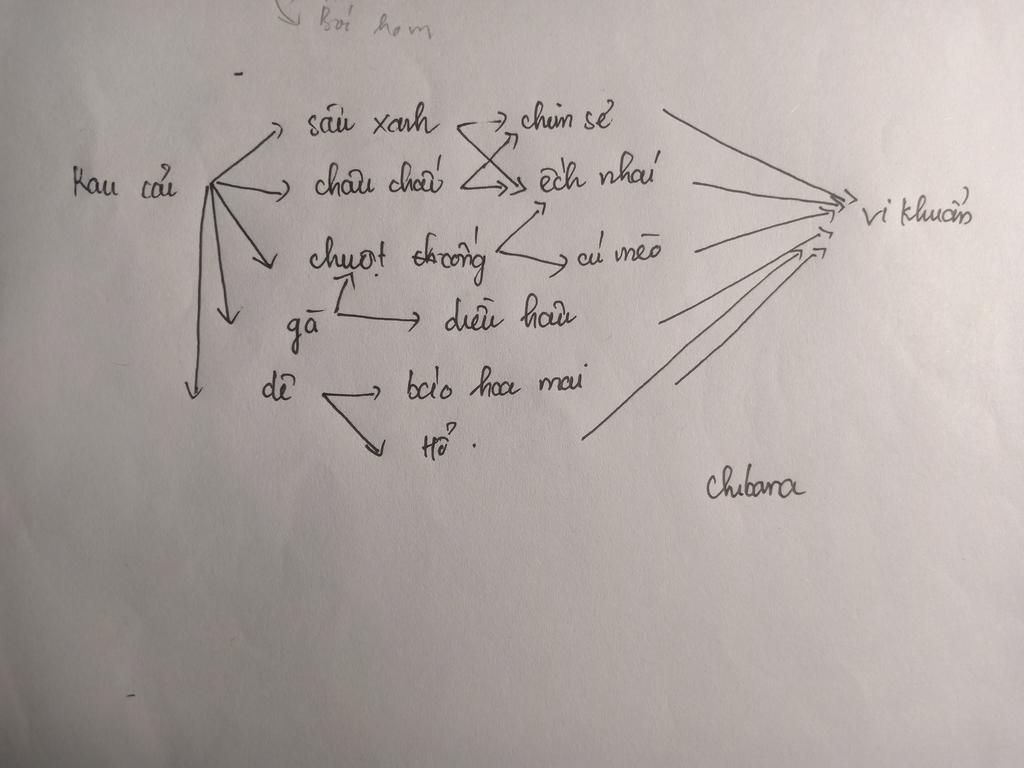 Bói hom
sâu xanh chim sẻ
Rau cải châu chấu ếch nhái
vi khuẩn
chuột chuồng cú mèo
gà diều hâu
dê báo hoa mai
Hổ .
Chibana